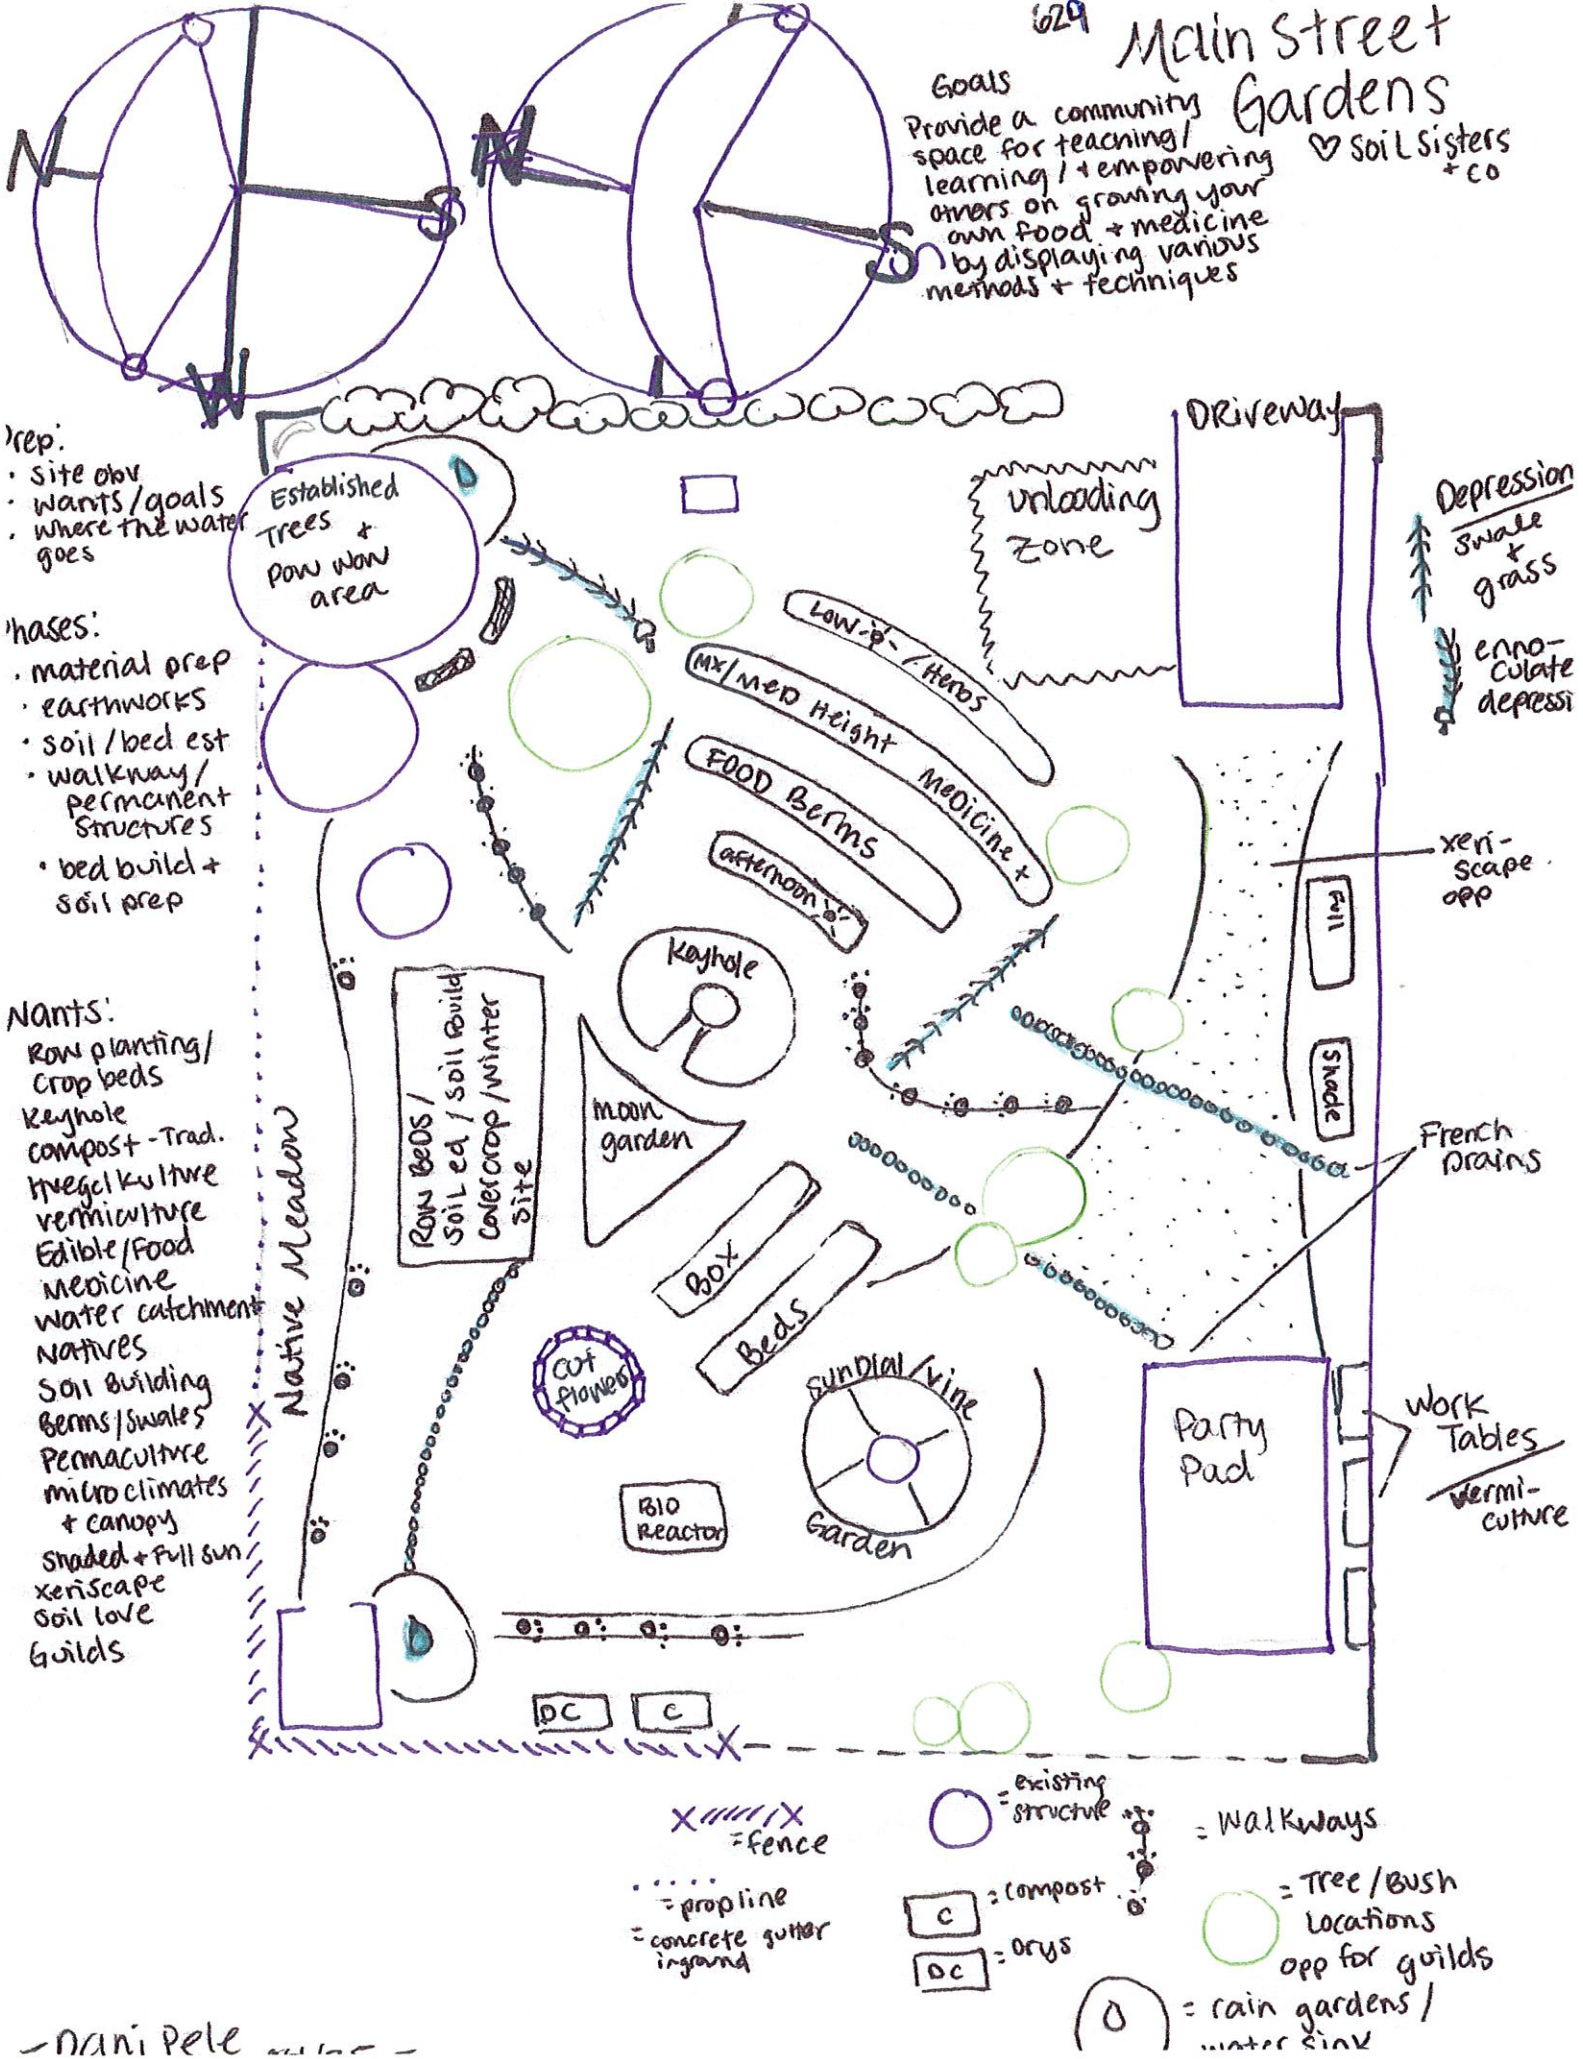 624 Main Street
Gardens
♡ Soil Sisters
+ co
Goals
Provide a community
space for teaching/
learning/+ empowering
others on growing your
own food + medicine
by displaying various
methods + techniques
N
S
W
N
S
rep:
· site obv
· wants/goals
· where the water
goes
hases:
· material prep
· earthworks
· soil/bed est
· walkway/
permanent
structures
· bed build +
soil prep
Wants:
Row planting/
crop beds
Keyhole
compost - Trad.
Huegel Kulture
vermiculture
Edible/Food
Medicine
water catchment
Natives
Soil Building
Berms/Swales
Permaculture
microclimates
+ canopy
shaded + full sun
xeriscape
Soil love
Guilds
Established
Trees +
pow wow
area
Driveway
unloading
zone
Low / Herbs
MX/MED Height Medicine +
FOOD Berms
afternoon
Keyhole
moon
garden
Row Beds/
Soil ed/soil build
covercrop/winter
site
Native Meadow
Box
Beds
cut
flower
Sundial/vine
Garden
BIO
Reactor
Party
Pad
DC
C
Full
Shade
Depression
swale
+
grass
enno-
culate
depressi
xeri-
scape
opp
French
Drains
Work
Tables
vermi-
culture
X//////X
= fence
= prop line
= concrete gutter
inground
= existing
structure
C = compost
DC = Drys
= Walkways
= Tree/Bush
Locations
opp for guilds
= rain gardens/
water sink
- Dani Pele